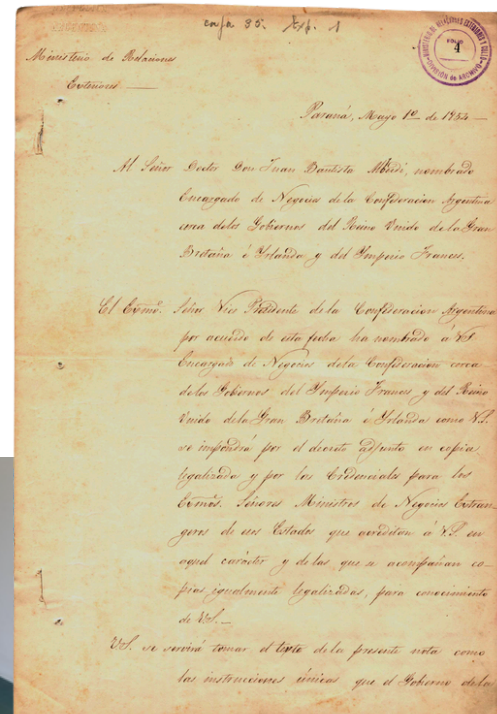 caja 35. Exp. 1
FOLIO
4
Ministerio de Relaciones
Exteriores —
Paraná, Mayo 1º de 1854 —
Al Señor Doctor Don Juan Bautista Alberdi, nombrado
Encargado de Negocios de la Confederacion Argentina
cerca de los Gobiernos del Reino Unido de la Gran
Bretaña é Yrlanda y del Ymperio Frances.
El Exmô. Señor Vice Presidente de la Confederacion Argentina
por acuerdo de esta fecha ha nombrado á V.S.
Encargado de Negocios de la Confederacion cerca
de los Gobiernos del Ymperio Frances y del Reino
Unido de la Gran Bretaña é Yrlanda como V.S.
se impondrá por el decreto adjunto en copia
legalizada y por las Credenciales para los
Exmôs. Señores Ministros de Negocios Estran-
geros de esos Estados que acreditan á V.S. en
aquel carácter y de las que se acompañan co-
pias igualmente legalizadas, para conocimiento
de V.S. —
V.S. se servirá tomar el texto de la presente nota como
las instrucciones únicas que el Gobierno de la